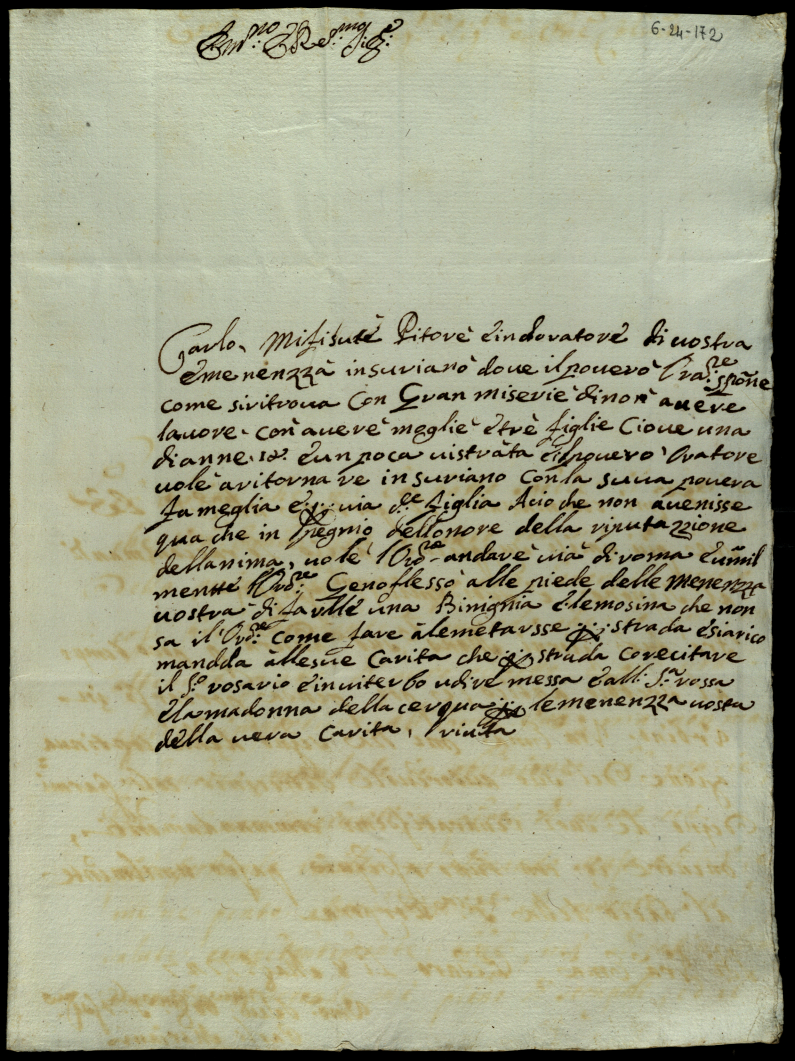 Em.^no e Re.^mo Sig.^e
6-24-172
Carlo Misisute Pitore è indoratore di uostra
emenenzza insuriano doue il pouero Ora.^re sspone
come siritroua Con Gran miserie di non auere
lauore con auere moglie è tre figlie Cioue una
dianne 18: è un poca uistrata è ilpouero Oratore
uole aritornare in suriano con la suua pouera
fameglia è uia figlia Acio che non auenisse
qua che in pegnio dellonore della riputazzione
dellanima, uole l'Or.^re andare uia di roma è umil
mentte l'Or.^re Genoflesso alle piede delle menenzza
uostra di farlle una Binignia elemosina che non
sa il Or.^re Come fare alemetarsse strada è siarico
mandda allesue Carita che strada corecitare
il S.^o rosario è inuiterbo udire messa è all S.^a rossa
è la madonna della cerqua lemenenzza uosta
della uera Carita,